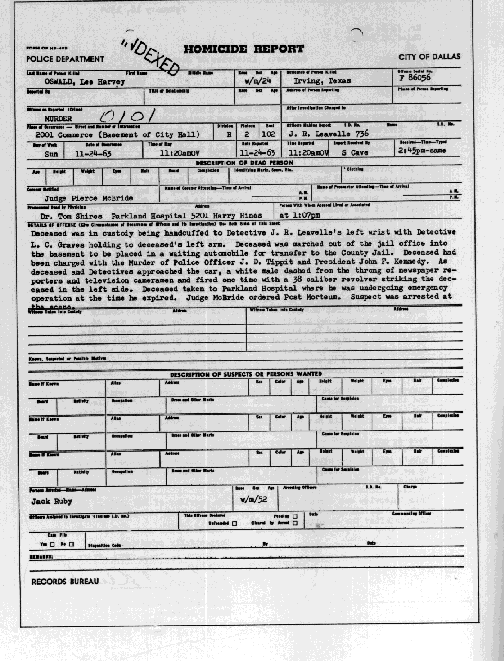 INDEXED
HOMICIDE REPORT
POLICE DEPARTMENT CITY OF DALLAS
Last Name of Person Killed First Name Middle Name Race Sex Age Residence of Person Killed Offense Serial No.
OSWALD, Lee Harvey w/m/24 Irving, Texas F 86056
Reported By Race Sex Age Address of Person Reporting Phone of Person Reporting
Offense as Reported After Investigation Changed to
MURDER 0101
Place of Occurrence — Street and Number or Intersection Division Platoon Beat Officers Making Report I.D. No.
2001 Commerce (Basement of City Hall) 2 102 J. R. Leavelle 736
Day of Week Date of Occurrence Time of Day Date Reported Time Reported Report Received By Received—Time—Typed
Sun 11-24-63 11:20am 11-24-63 11:20am S Cave 2:45pm-
DESCRIPTION OF DEAD PERSON
Age Height Weight Eyes Hair Beard Complexion Identifying Marks, Scars, Etc. Clothing
Coroner Notified Name of Coroner Attending—Time of Arrival Name of Prosecutor Attending—Time of Arrival
Judge Pierce McBride
Pronounced Dead by Physician Address
Dr. Tom Shires Parkland Hospital 5201 Harry Hines at 1:07pm
DETAILS OF OFFENSE
Deceased was in custody being handcuffed to Detective J. R. Leavelle's left wrist with Detective
L. C. Graves holding to deceased's left arm. Deceased was marched out of the jail office into
the basement to be placed in a waiting automobile for transfer to the County Jail. Deceased had
been charged with the Murder of Police Officer J. D. Tippit and President John F. Kennedy. As
deceased and Detectives approached the car, a white male dashed from the throng of newspaper re-
porters and television cameramen and fired one time with a 38 caliber revolver striking the dec-
eased in the left side. Deceased taken to Parkland Hospital where he was undergoing emergency
operation at the time he expired. Judge McBride ordered Post Mortem. Suspect was arrested at
the scene.
Witness Taken into Custody Address Witness Taken into Custody Address
Known, Suspected or Possible Motive
DESCRIPTION OF SUSPECTS OR PERSONS WANTED
Name If Known Alias Address Sex Color Age Height Weight Eyes Hair Complexion
Beard Nativity Occupation Dress and Other Marks Cause for Suspicion
Name If Known Alias Address Sex Color Age Height Weight Eyes Hair Complexion
Beard Nativity Occupation Dress and Other Marks Cause for Suspicion
Name If Known Alias Address Sex Color Age Height Weight Eyes Hair Complexion
Beard Nativity Occupation Dress and Other Marks Cause for Suspicion
Persons Arrested—Name—Address Race Sex Age Arresting Officers I.D. No. Charge
Jack Ruby w/m/52
Officers Assigned to Investigate This Offense Declared Pending Date Commanding Officer
Unfounded Cleared by Arrest
Yes No Disposition Code By Date
REMARKS:
RECORDS BUREAU